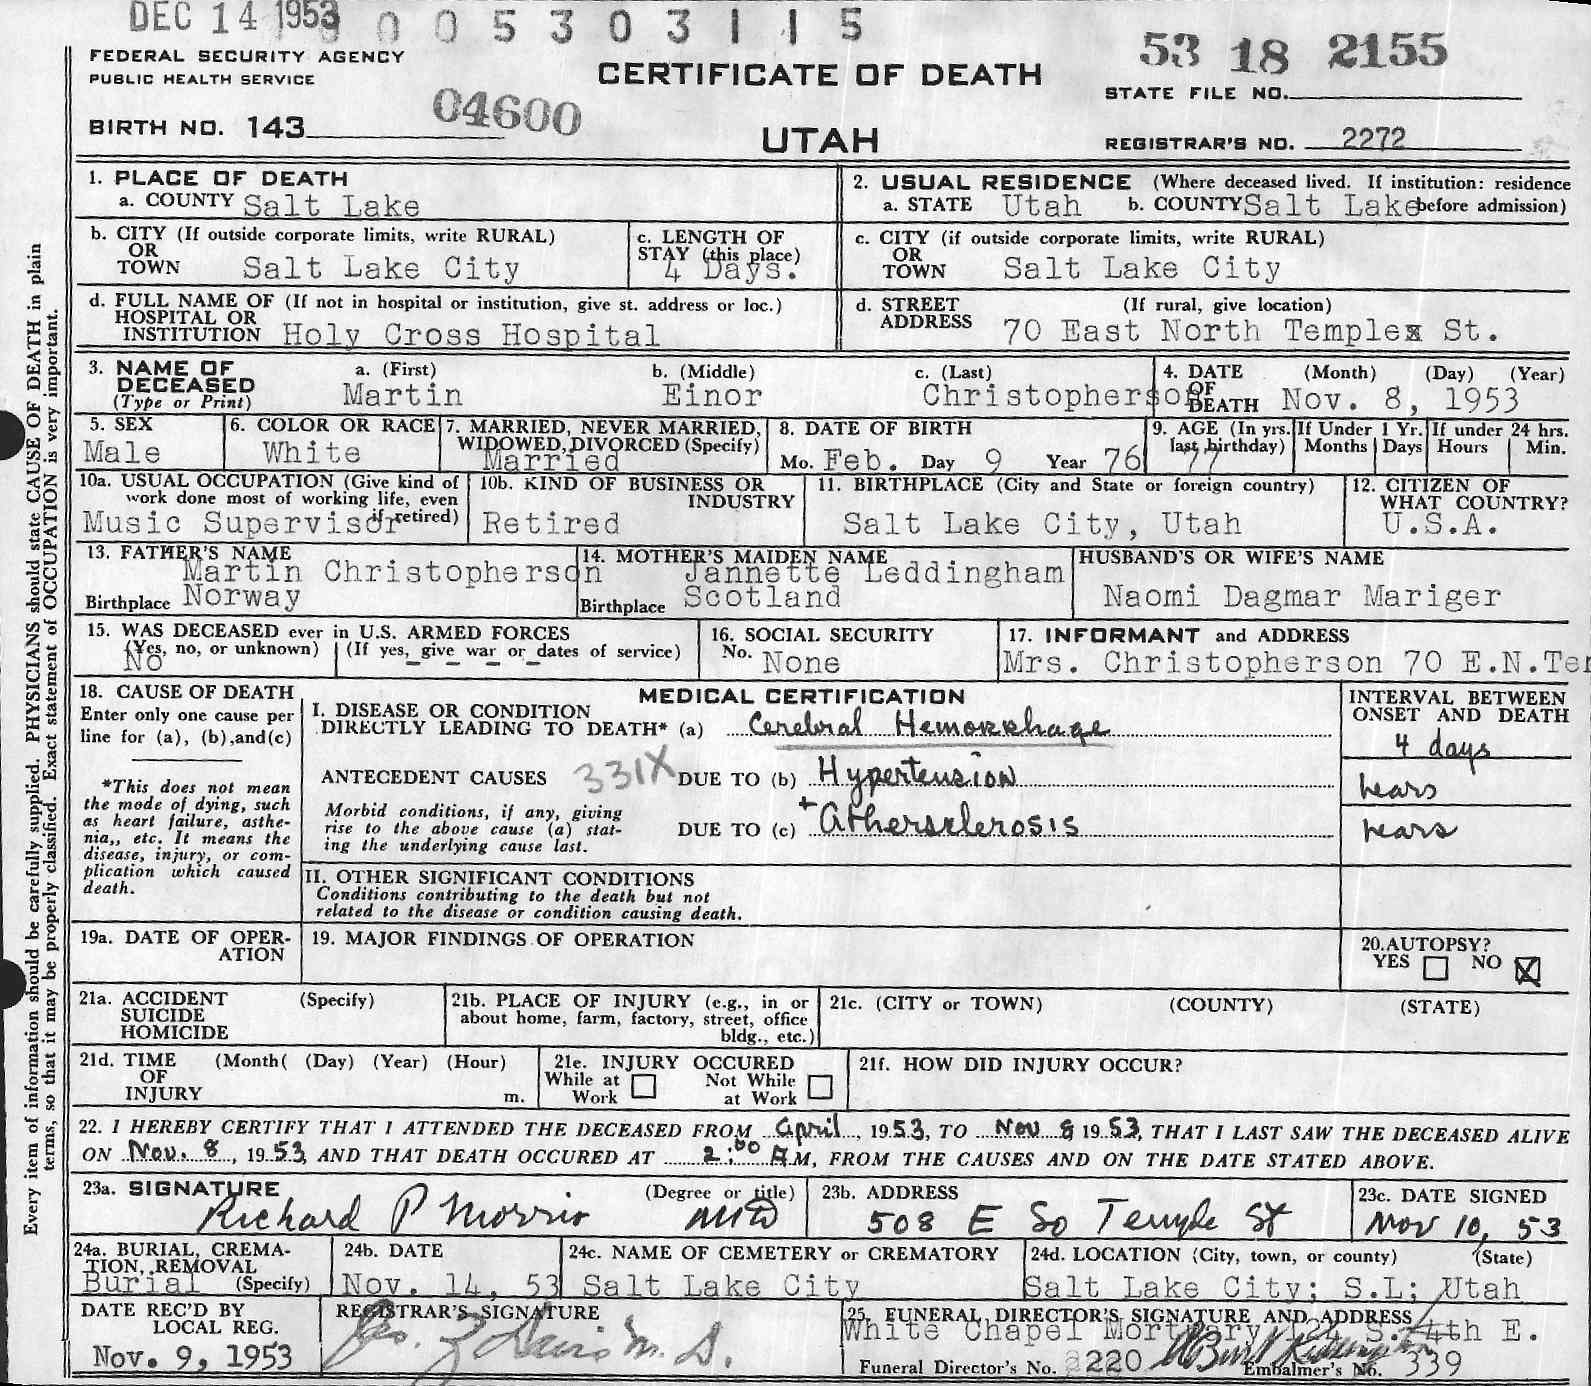 DEC 14 1953 0 0 5 3 0 3 1 1 5
53 18 2155
FEDERAL SECURITY AGENCY
PUBLIC HEALTH SERVICE
CERTIFICATE OF DEATH
STATE FILE NO.
04600
BIRTH NO. 143
UTAH
REGISTRAR'S NO. 2272
1. PLACE OF DEATH
a. COUNTY Salt Lake
2. USUAL RESIDENCE (Where deceased lived. If institution: residence
a. STATE Utah b. COUNTY Salt Lake before admission)
b. CITY (If outside corporate limits, write RURAL)
OR
TOWN Salt Lake City
c. LENGTH OF
STAY (this place)
4 Days.
c. CITY (if outside corporate limits, write RURAL)
OR
TOWN Salt Lake City
d. FULL NAME OF (If not in hospital or institution, give st. address or loc.)
HOSPITAL OR
INSTITUTION Holy Cross Hospital
d. STREET (If rural, give location)
ADDRESS 70 East North Templex St.
3. NAME OF
DECEASED
(Type or Print)
a. (First) b. (Middle) c. (Last)
Martin Einor Christopherson
4. DATE (Month) (Day) (Year)
OF
DEATH Nov. 8, 1953
5. SEX
Male
6. COLOR OR RACE
White
7. MARRIED, NEVER MARRIED,
WIDOWED, DIVORCED (Specify)
Married
8. DATE OF BIRTH
Mo. Feb. Day 9 Year 76
9. AGE (In yrs.
last birthday)
77
If Under 1 Yr.
Months Days
If under 24 hrs.
Hours Min.
10a. USUAL OCCUPATION (Give kind of
work done most of working life, even
if retired)
Music Supervisor
10b. KIND OF BUSINESS OR
INDUSTRY
Retired
11. BIRTHPLACE (City and State or foreign country)
Salt Lake City, Utah
12. CITIZEN OF
WHAT COUNTRY?
U.S.A.
13. FATHER'S NAME
Martin Christopherson
Birthplace Norway
14. MOTHER'S MAIDEN NAME
Jannette Leddingham
Birthplace Scotland
HUSBAND'S OR WIFE'S NAME
Naomi Dagmar Mariger
15. WAS DECEASED ever in U.S. ARMED FORCES
(Yes, no, or unknown) (If yes, give war or dates of service)
No - - - -
16. SOCIAL SECURITY
No. None
17. INFORMANT and ADDRESS
Mrs. Christopherson 70 E.N.Te
18. CAUSE OF DEATH
Enter only one cause per
line for (a), (b),and(c)
*This does not mean
the mode of dying, such
as heart failure, asthe-
nia,, etc. It means the
disease, injury, or com-
plication which caused
death.
MEDICAL CERTIFICATION
I. DISEASE OR CONDITION
DIRECTLY LEADING TO DEATH* (a) Cerebral Hemorrhage
ANTECEDENT CAUSES 331X DUE TO (b) Hypertension
Morbid conditions, if any, giving
rise to the above cause (a) stat-
ing the underlying cause last.
+
DUE TO (c) Atherosclerosis
INTERVAL BETWEEN
ONSET AND DEATH
4 days
years
years
II. OTHER SIGNIFICANT CONDITIONS
Conditions contributing to the death but not
related to the disease or condition causing death.
19a. DATE OF OPER-
ATION
19. MAJOR FINDINGS OF OPERATION
20. AUTOPSY?
YES NO X
21a. ACCIDENT (Specify)
SUICIDE
HOMICIDE
21b. PLACE OF INJURY (e.g., in or
about home, farm, factory, street, office
bldg., etc.)
21c. (CITY or TOWN) (COUNTY) (STATE)
21d. TIME (Month( (Day) (Year) (Hour)
OF
INJURY m.
21e. INJURY OCCURED
While at Work Not While at Work
21f. HOW DID INJURY OCCUR?
22. I HEREBY CERTIFY THAT I ATTENDED THE DECEASED FROM April, 1953, TO Nov 8 1953, THAT I LAST SAW THE DECEASED ALIVE
ON Nov. 8, 1953, AND THAT DEATH OCCURED AT 2:00 AM, FROM THE CAUSES AND ON THE DATE STATED ABOVE.
23a. SIGNATURE (Degree or title)
Richard P Morris MD
23b. ADDRESS
508 E So Temple St
23c. DATE SIGNED
Nov 10, 53
24a. BURIAL, CREMA-
TION, REMOVAL
(Specify)
Burial
24b. DATE
Nov. 14, 53
24c. NAME OF CEMETERY or CREMATORY
Salt Lake City
24d. LOCATION (City, town, or county) (State)
Salt Lake City; S.L; Utah
DATE REC'D BY
LOCAL REG.
Nov. 9, 1953
REGISTRAR'S SIGNATURE
Geo. Z Davis M. D.
25. FUNERAL DIRECTOR'S SIGNATURE AND ADDRESS
White Chapel Mortuary 124 S. 4th E.
Funeral Director's No. 2220 Embalmer's No. 339
Every item of information should be carefully supplied. PHYSICIANS should state CAUSE OF DEATH in plain
terms, so that it may be properly classified. Exact statement of OCCUPATION is very important.